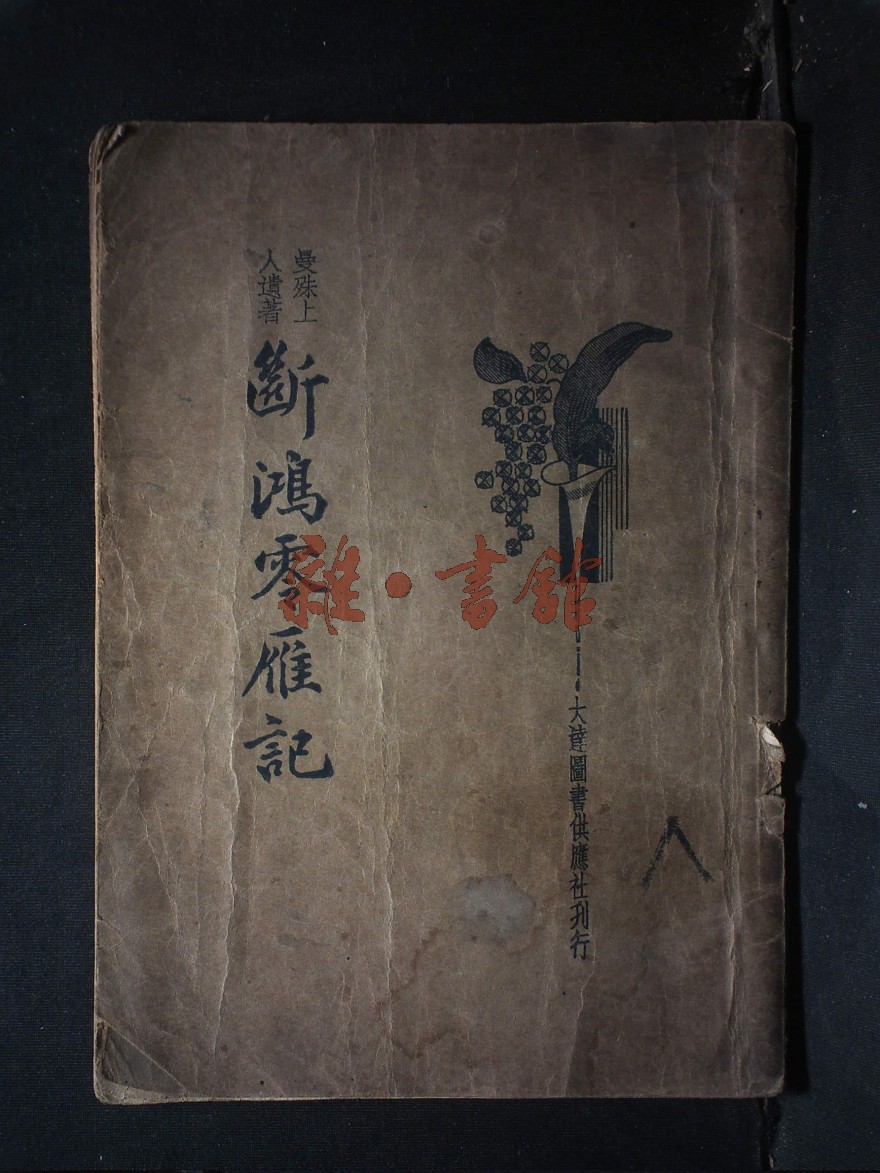 曼殊上
人遺著
斷鴻零雁記
大達圖書供應社刊行
雜·書館